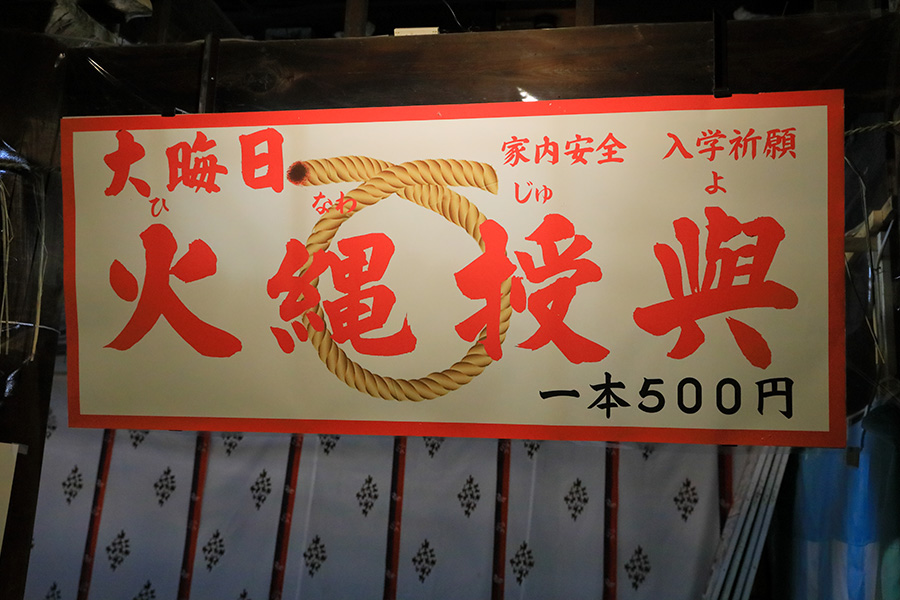 大晦日
家内安全 入学祈願
ひ なわ じゅ よ
火縄授與
一本500円